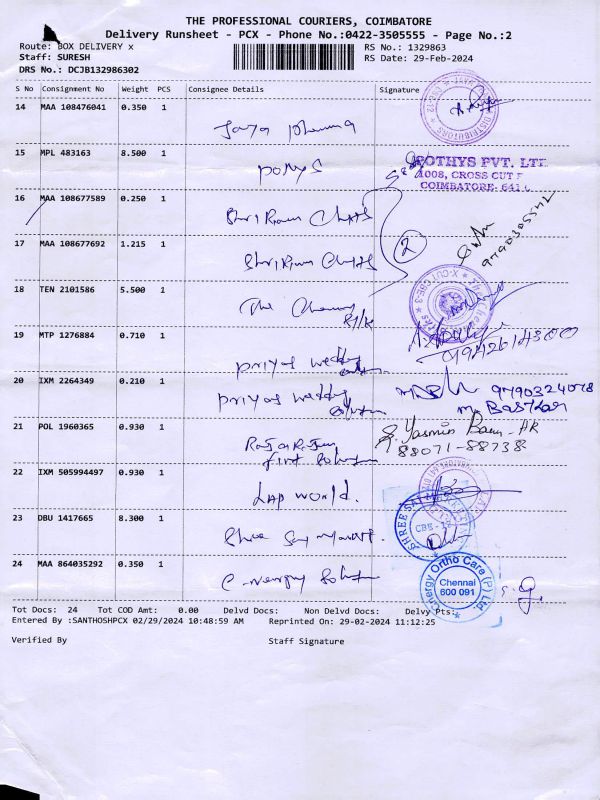 THE PROFESSIONAL COURIERS, COIMBATORE
Delivery Runsheet - PCX - Phone No.:0422-3505555 - Page No.:2
Route: BOX DELIVERY x RS No.: 1329863
Staff: SURESH RS Date: 29-Feb-2024
DRS No.: DCJB132986302
S No Consignment No Weight PCS Consignee Details Signature
14 MAA 108476041 0.350 1
15 MPL 483163 8.500 1
POTHYS
POTHYS PVT. LTD
1008, CROSS CUT
COIMBATORE- 641
16 MAA 108677589 0.250 1
Shri Ram Chits
17 MAA 108677692 1.215 1
2
Shri Ram Chits
18 TEN 2101586 5.500 1
The Chennai
19 MTP 1276884 0.710 1
Priyas wedding
20 IXM 2264349 0.210 1
Priyas wedding
9790324078
M. Baskar
21 POL 1960365 0.930 1
S. Yasmin Banu - AR
88071-88738
22 IXM 505994497 0.930 1
Lap World.
23 DBU 1417665 8.300 1
SHREE SAI
CBE-12
Shree Sai
24 MAA 864035292 0.350 1
Energy Ortho Care (P) Ltd
Chennai
600 091
Tot Docs: 24 Tot COD Amt: 0.00 Delvd Docs: Non Delvd Docs: Delvy Pts:
Entered By :SANTHOSHPCX 02/29/2024 10:48:59 AM Reprinted On: 29-02-2024 11:12:25
Verified By Staff Signature